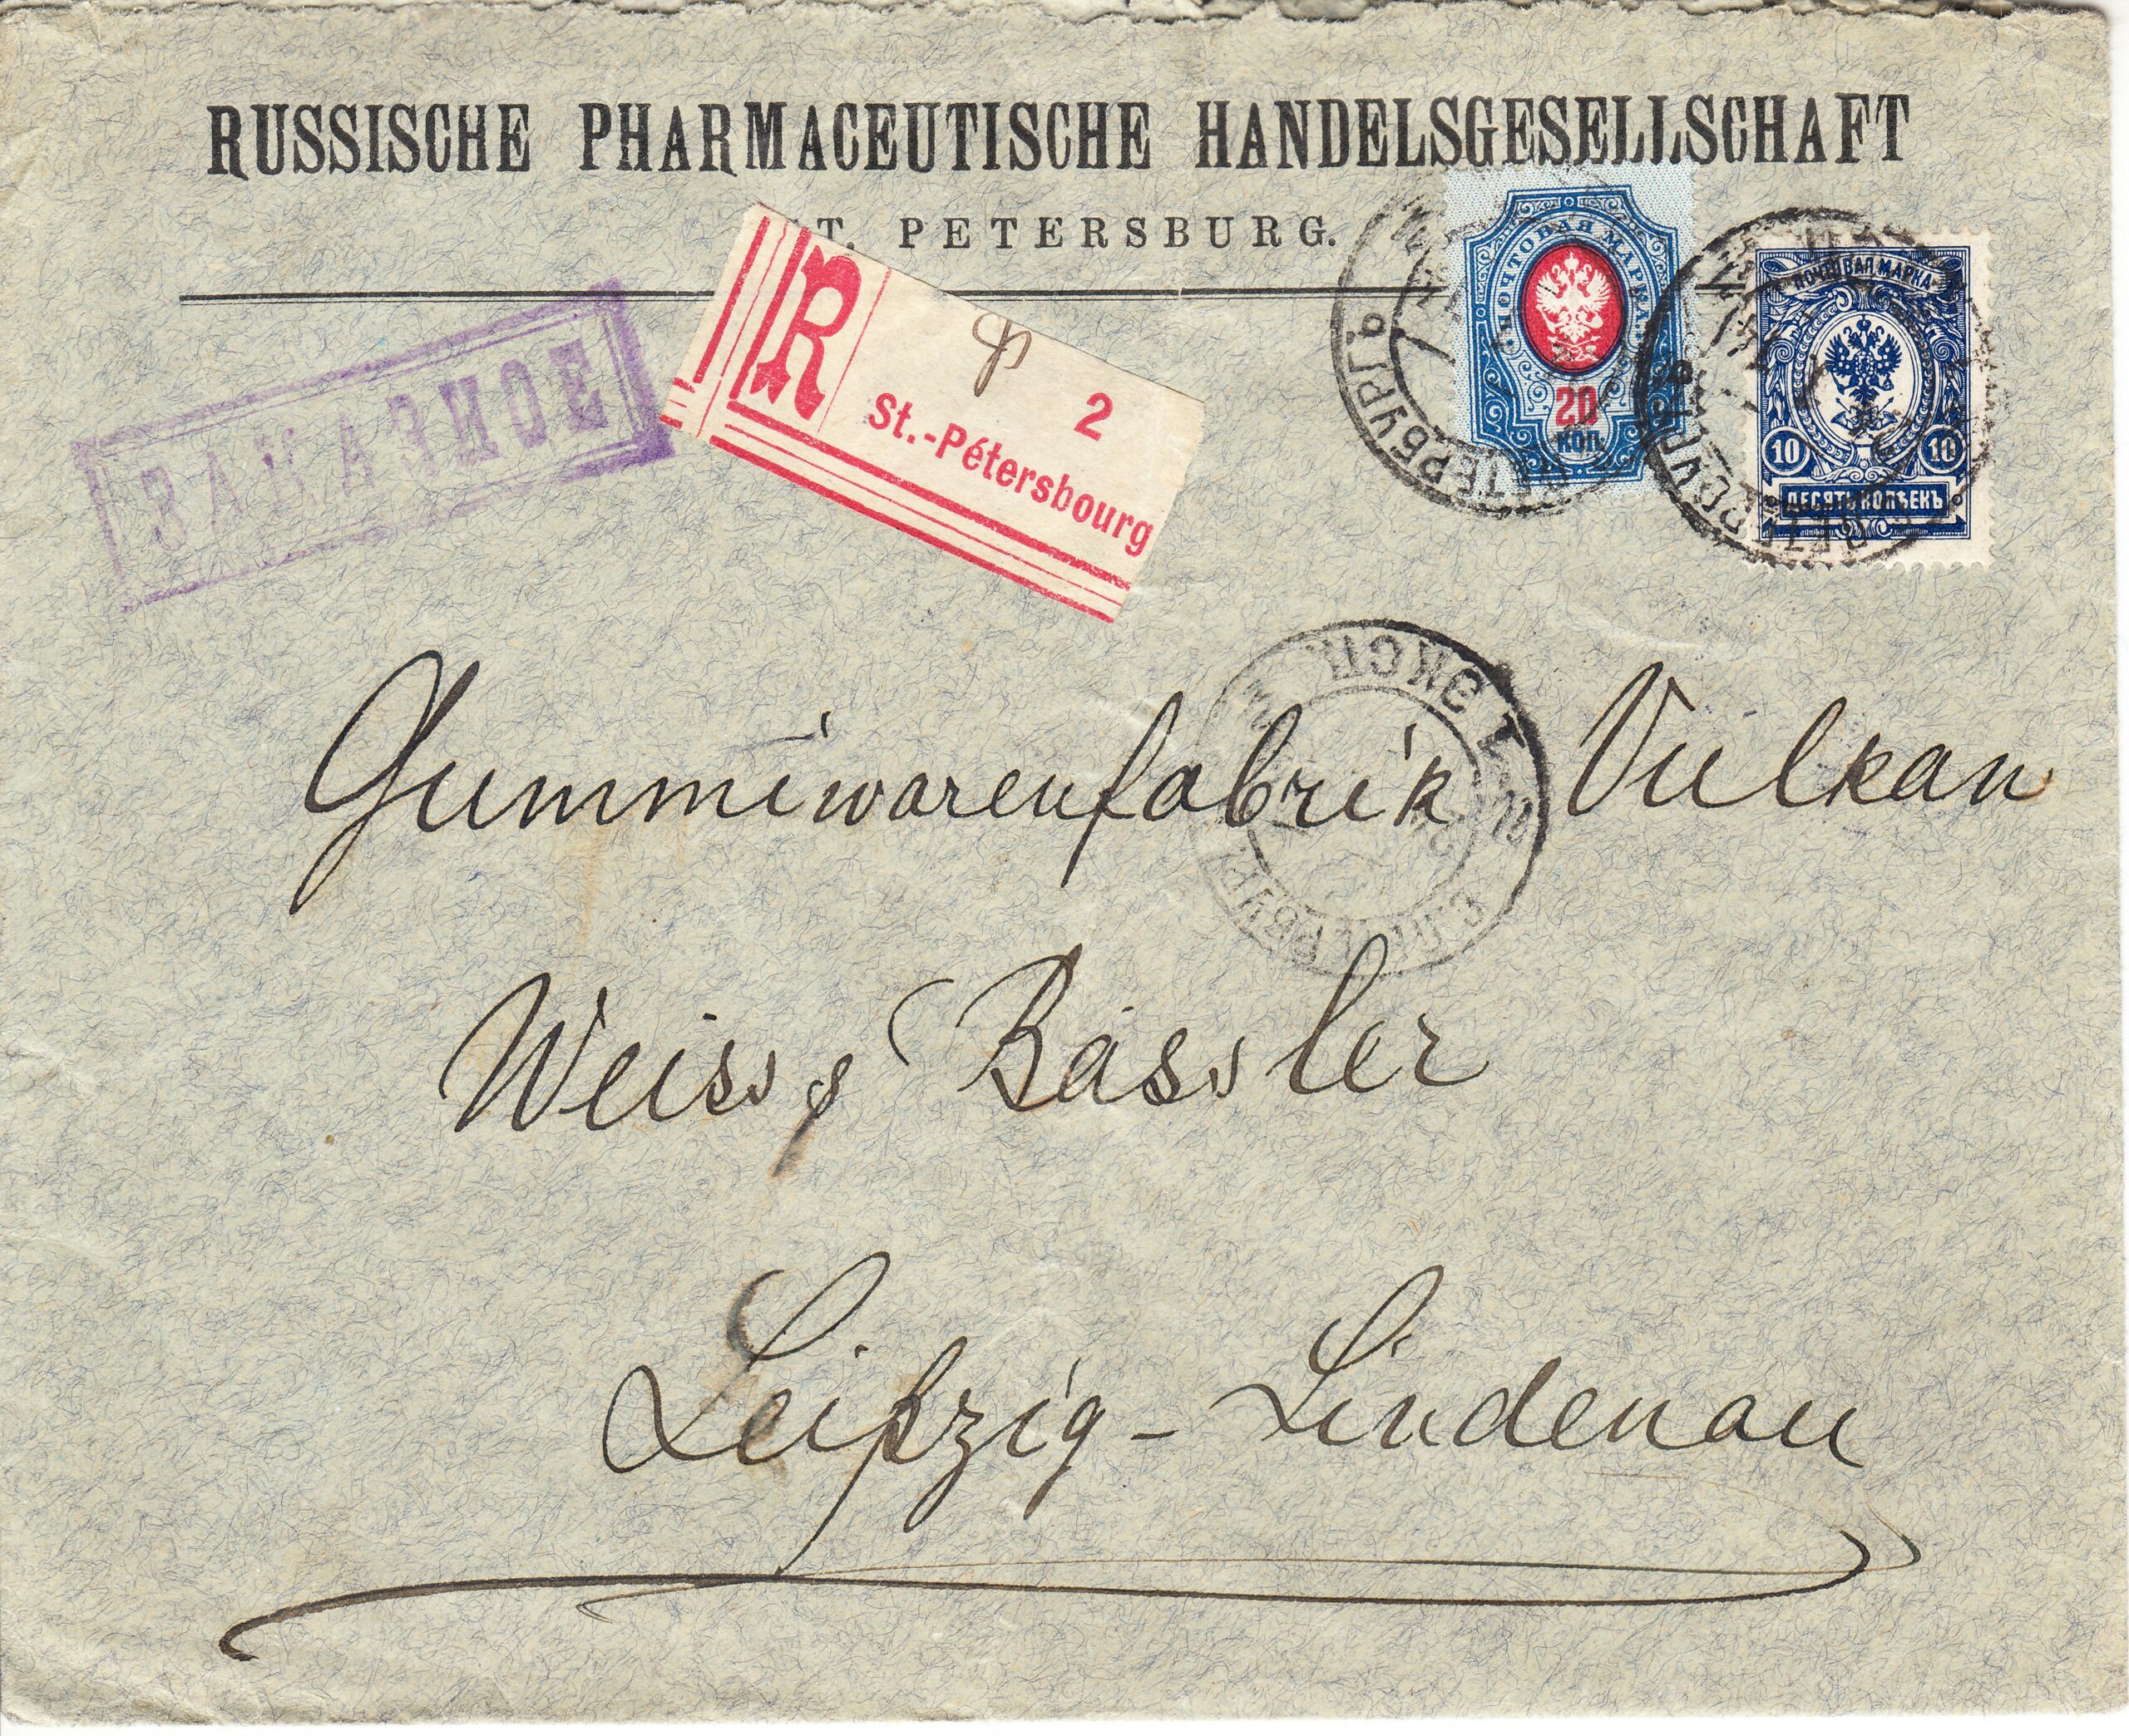 RUSSISCHE PHARMACEUTISCHE HANDELSGESELLSCHAFT
T. PETERSBURG.
ЗАКАЗНОЕ
R
2
St.-Pétersbourg
ПОЧТОВАЯ МАРКА
20
КОП.
ПОЧТОВАЯ МАРКА
10 10
ДЕСЯТЬ КОПѢЕКЪ
ПЕТЕРБУРГЪ
ПЕТЕРБУРГЪ
1 ЭКСП.
С.ПЕТЕРБУРГ
Gummiwarenfabrik Vulkan
Weiss & Bässler
Leipzig-Lindenau